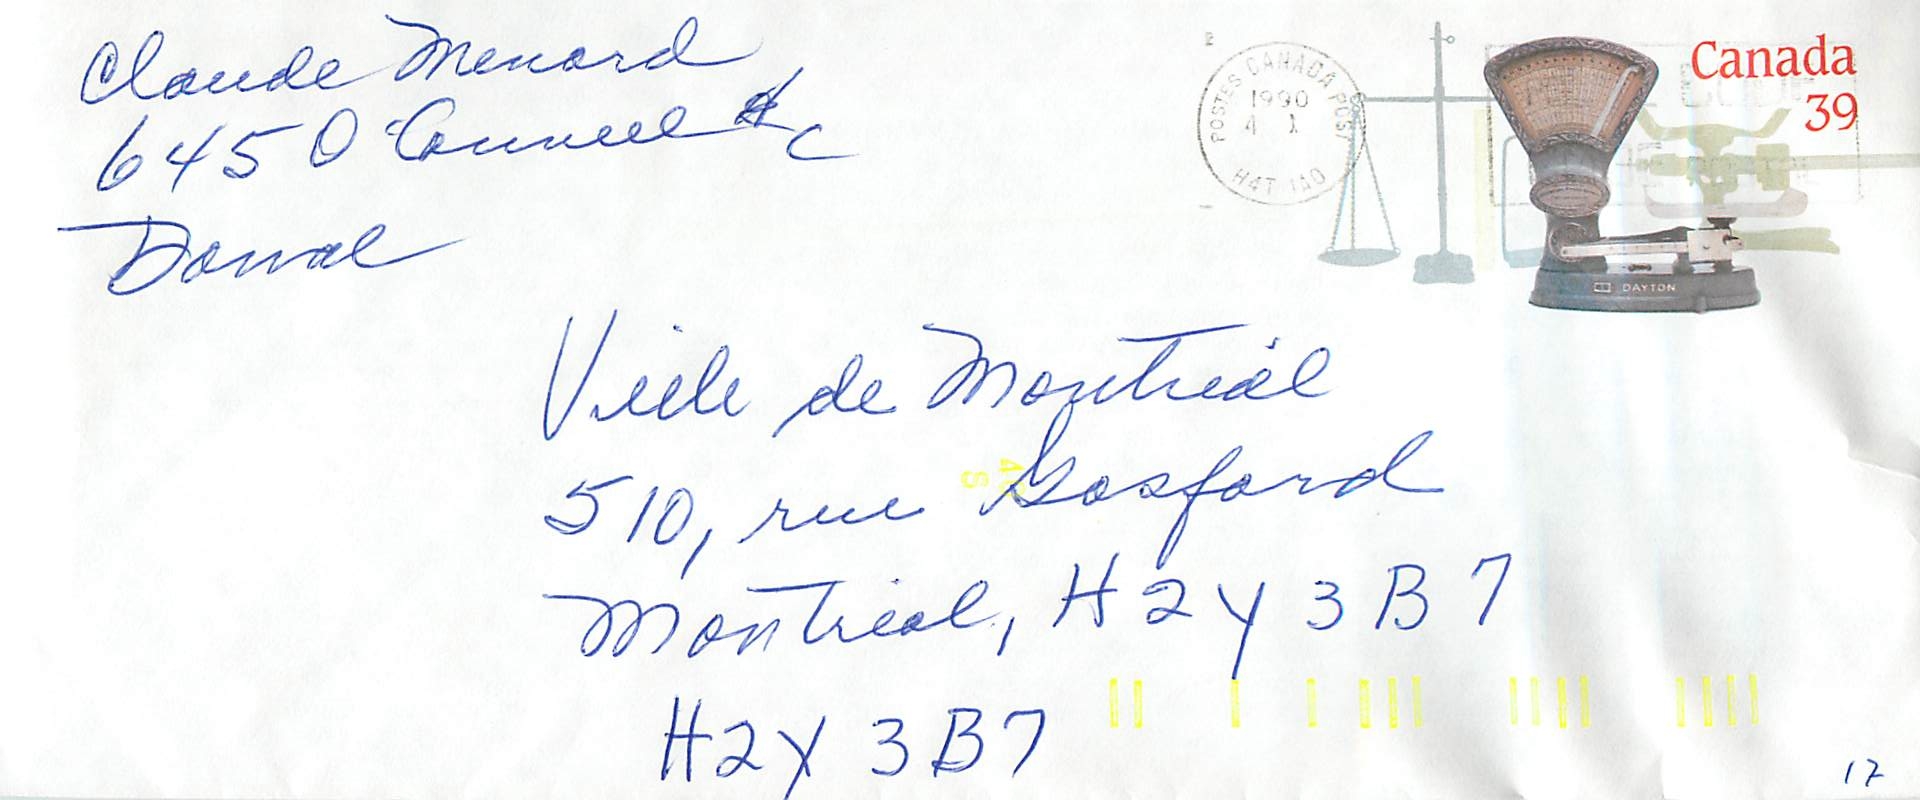 Claude Menard
645 O Connell #C
Dorval
POSTES CANADA POST
1990
4 X
H4T 1A0
Canada
39
DAYTON
Ville de Montréal
510, rue Gosford
Montreal, H2Y 3B7
H2Y 3B7
17